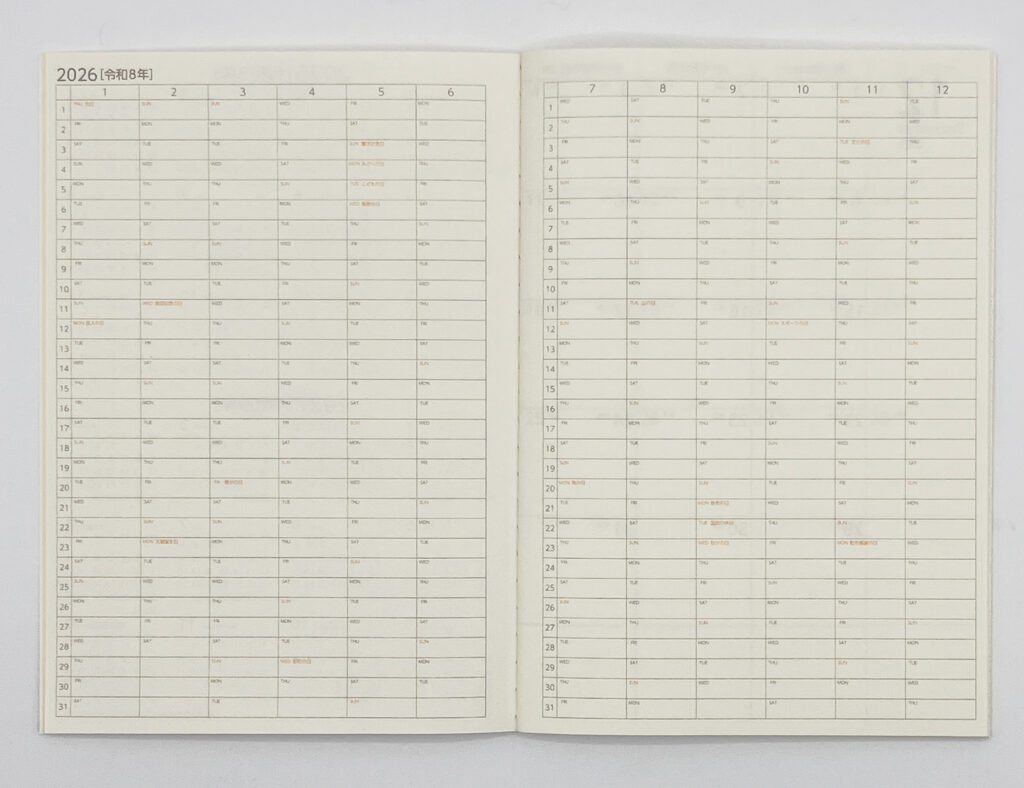 2026[令和8年]
1 2 3 4 5 6
1 THU 元日 SUN SUN WED FRI MON
2 FRI MON MON THU SAT TUE
3 SAT TUE TUE FRI SUN 憲法記念日 WED
4 SUN WED WED SAT MON みどりの日 THU
5 MON THU THU SUN TUE こどもの日 FRI
6 TUE FRI FRI MON WED 振替休日 SAT
7 WED SAT SAT TUE THU SUN
8 THU SUN SUN WED FRI MON
9 FRI MON MON THU SAT TUE
10 SAT TUE TUE FRI SUN WED
11 SUN WED 建国記念の日 WED SAT MON THU
12 MON 成人の日 THU THU SUN TUE FRI
13 TUE FRI FRI MON WED SAT
14 WED SAT SAT TUE THU SUN
15 THU SUN SUN WED FRI MON
16 FRI MON MON THU SAT TUE
17 SAT TUE TUE FRI SUN WED
18 SUN WED WED SAT MON THU
19 MON THU THU SUN TUE FRI
20 TUE FRI FRI 春分の日 MON WED SAT
21 WED SAT SAT TUE THU SUN
22 THU SUN SUN WED FRI MON
23 FRI MON 天皇誕生日 MON THU SAT TUE
24 SAT TUE TUE FRI SUN WED
25 SUN WED WED SAT MON THU
26 MON THU THU SUN TUE FRI
27 TUE FRI FRI MON WED SAT
28 WED SAT SAT TUE THU SUN
29 THU SUN WED 昭和の日 FRI MON
30 FRI MON THU SAT TUE
31 SAT TUE SUN
7 8 9 10 11 12
1 WED SAT TUE THU SUN TUE
2 THU SUN WED FRI MON WED
3 FRI MON THU SAT TUE 文化の日 THU
4 SAT TUE FRI SUN WED FRI
5 SUN WED SAT MON THU SAT
6 MON THU SUN TUE FRI SUN
7 TUE FRI MON WED SAT MON
8 WED SAT TUE THU SUN TUE
9 THU SUN WED FRI MON WED
10 FRI MON THU SAT TUE THU
11 SAT TUE 山の日 FRI SUN WED FRI
12 SUN WED SAT MON スポーツの日 THU SAT
13 MON THU SUN TUE FRI SUN
14 TUE FRI MON WED SAT MON
15 WED SAT TUE THU SUN TUE
16 THU SUN WED FRI MON WED
17 FRI MON THU SAT TUE THU
18 SAT TUE FRI SUN WED FRI
19 SUN WED SAT MON THU SAT
20 MON 海の日 THU SUN TUE FRI SUN
21 TUE FRI MON 敬老の日 WED SAT MON
22 WED SAT TUE 国民の休日 THU SUN TUE
23 THU SUN WED 秋分の日 FRI MON 勤労感謝の日 WED
24 FRI MON THU SAT TUE THU
25 SAT TUE FRI SUN WED FRI
26 SUN WED SAT MON THU SAT
27 MON THU SUN TUE FRI SUN
28 TUE FRI MON WED SAT MON
29 WED SAT TUE THU SUN TUE
30 THU SUN WED FRI MON WED
31 FRI MON SAT THU